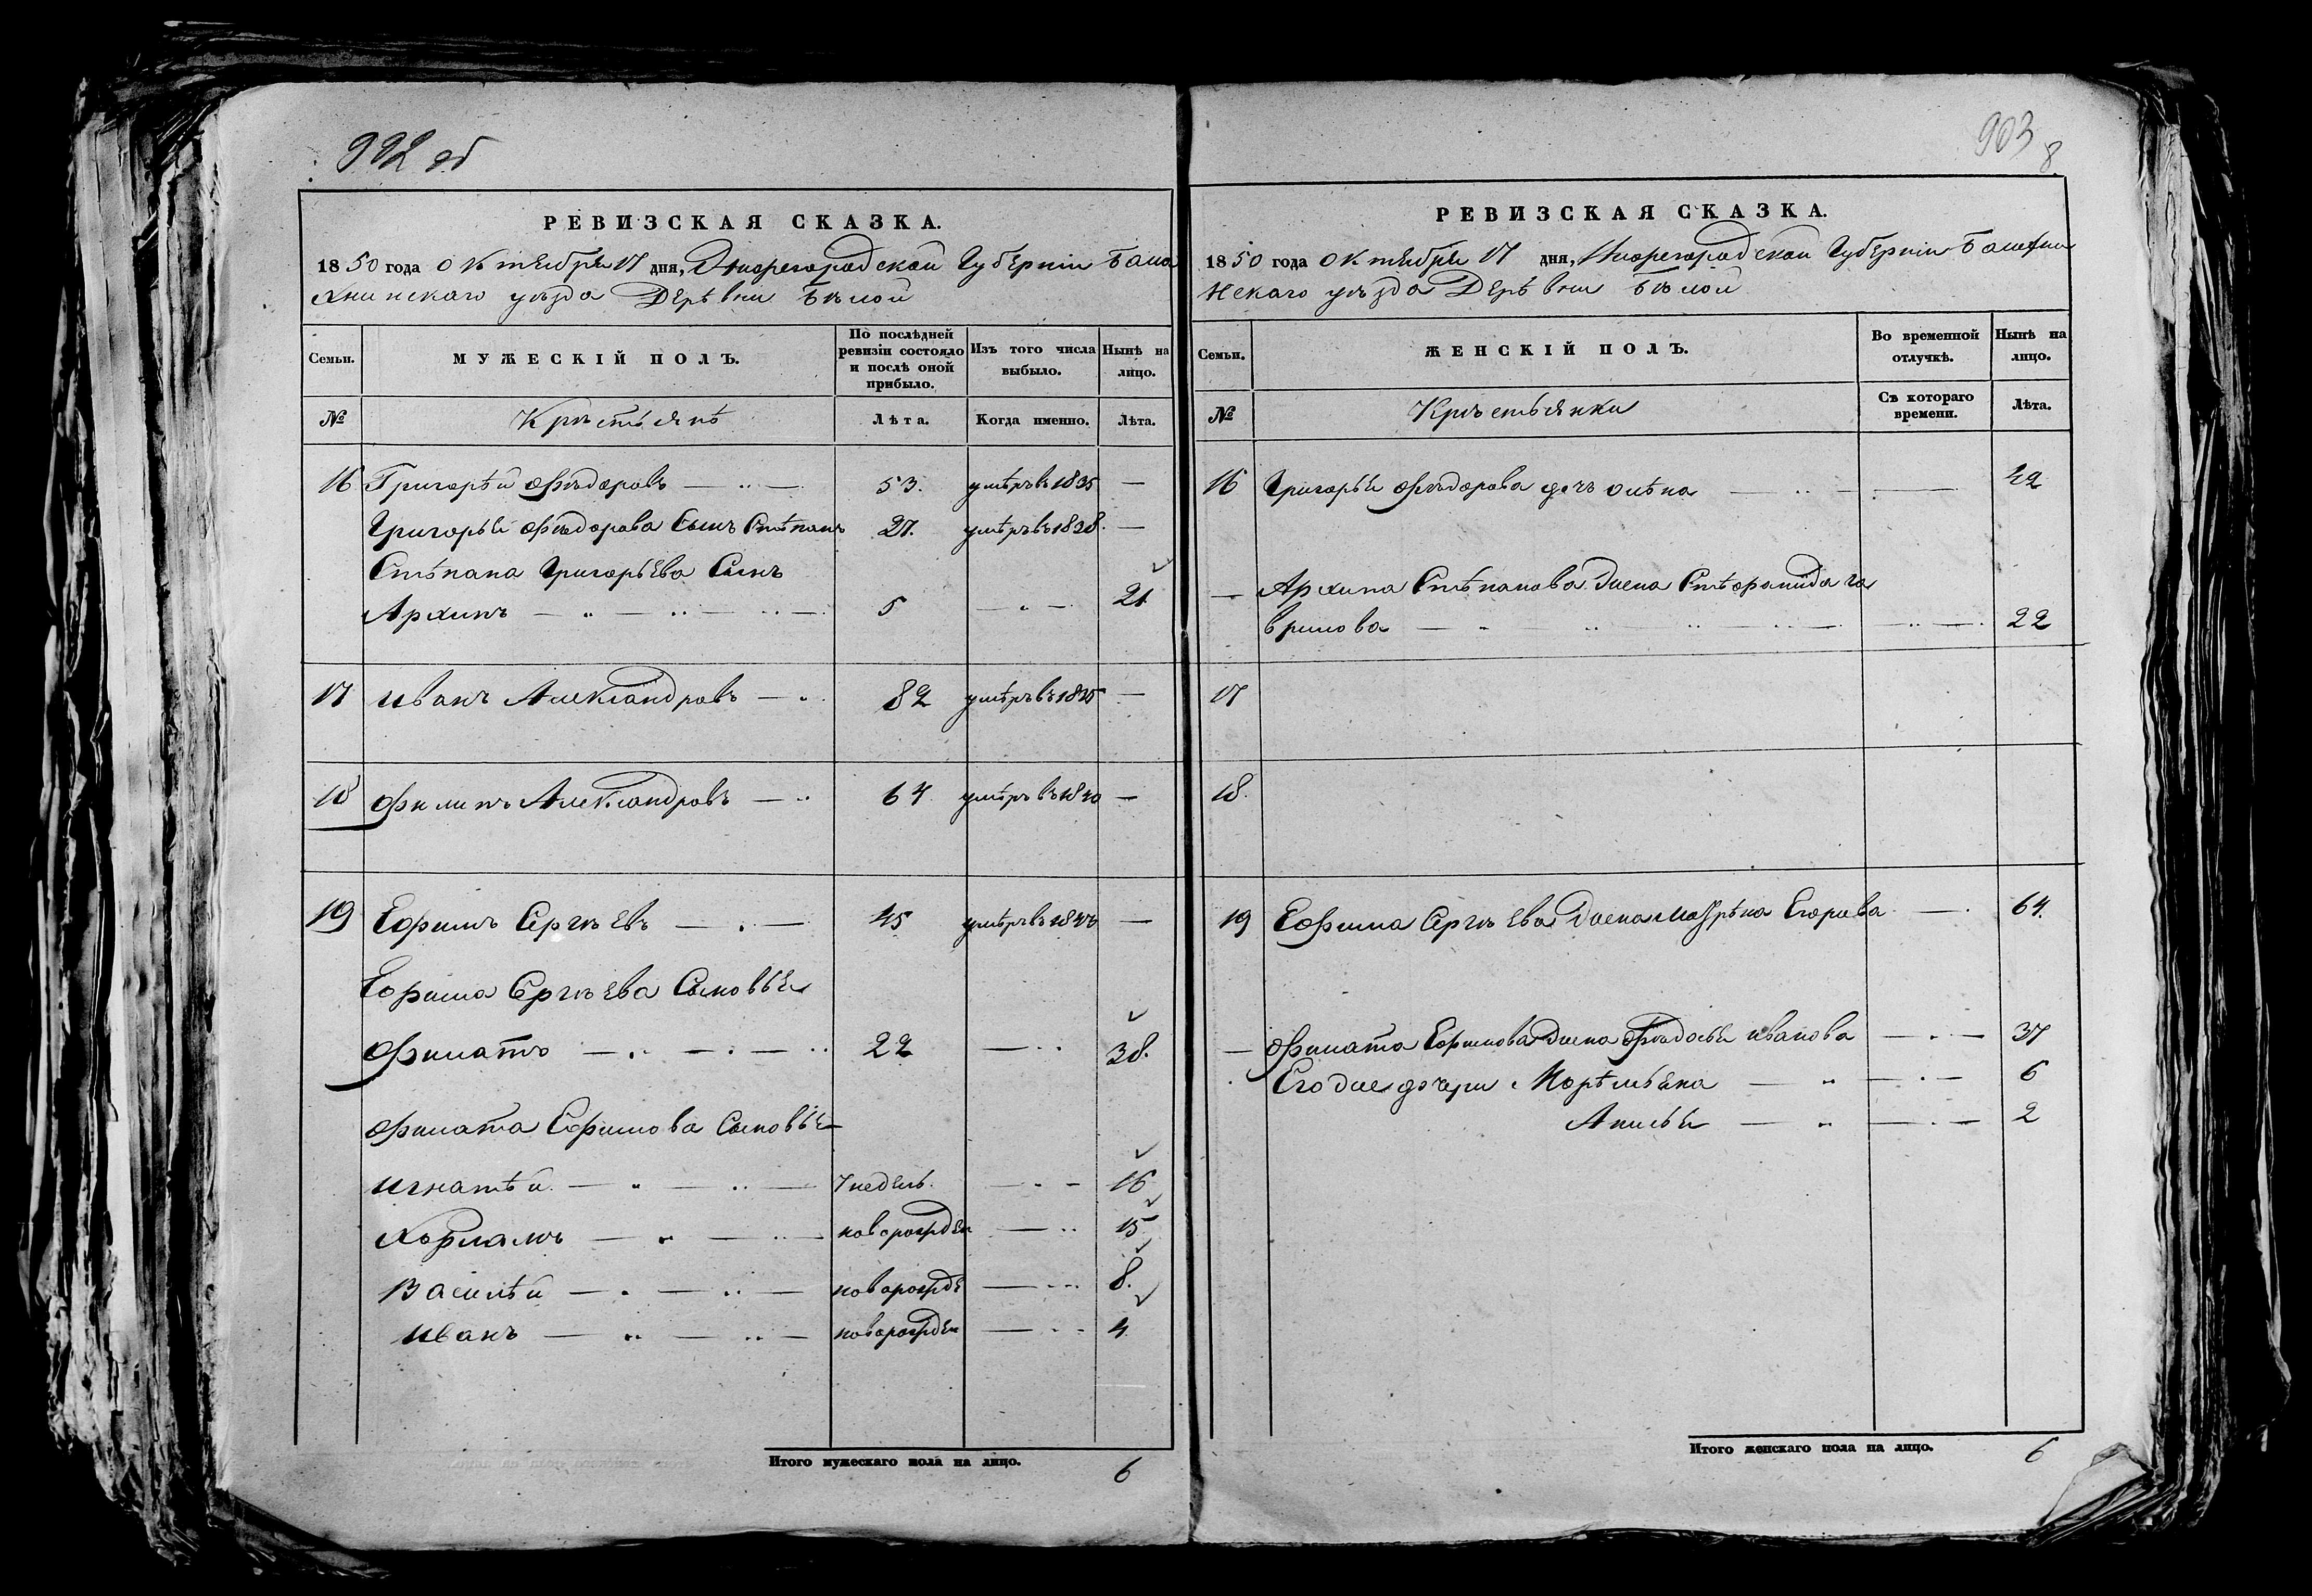 992 об
РЕВИЗСКАЯ СКАЗКА.
1850 года Октября 17 дня, Нижегородской Губернiи Бала
хнинскаго уѣзда Дерѣвни Бѣлой
Семьи.
МУЖЕСКIЙ ПОЛЪ.
По послѣдней ревизiи состояло и послѣ оной прибыло.
Изъ того числа выбыло.
Нынѣ на лицо.
№
Крѣстьянѣ
Лѣта.
Когда именно.
Лѣта.
16 Григорѣй Фѣдоровъ 53. умѣръ въ 1835 —
Григорья Фѣдорова Сынъ Стѣпанъ 27. умѣръ въ 1838. —
Стѣпана Григорьева Сынъ
Архипъ 5 — 21
17 Иванъ Александровъ 82 умѣръ въ 1835 —
18 Филипъ Александровъ 64 умѣръ въ 1840 —
19 Ефимъ Сергѣевъ 45 умѣръ въ —
Ефима Сергѣева Сыновья
Филатъ 22 — 38.
Филата Ефимова Сыновья
Игнатѣй 7 недель. — 16
Харламъ новорожден — 15
Василѣй новорожде — 8.
Иванъ новорожден — 4
Итого мужескаго пола на лицо. 6
903
8
РЕВИЗСКАЯ СКАЗКА.
1850 года Октября 17 дня, Нижегородской Губернiи Балахни
нскаго уѣзда Дерѣвни Бѣлой
Семьи.
ЖЕНСКIЙ ПОЛЪ.
Во временной отлучкѣ.
Нынѣ на лицо.
№
Крѣстьянки
Съ котораго времени.
Лѣта.
16 Григорья Фѣдорова дочь Олѣна — 42
— Архипа Стѣпанова жена Стѣфанида га
врилова — 22
17
18.
19 Ефима Сергѣева жена Матрѣна Егорова — 64.
— Филата Ефимова жена Фѣдосья Иванова — 37
Его же дочери Марѣмьяна — 6
Анисья — 2
Итого женскаго пола на лицо. 6